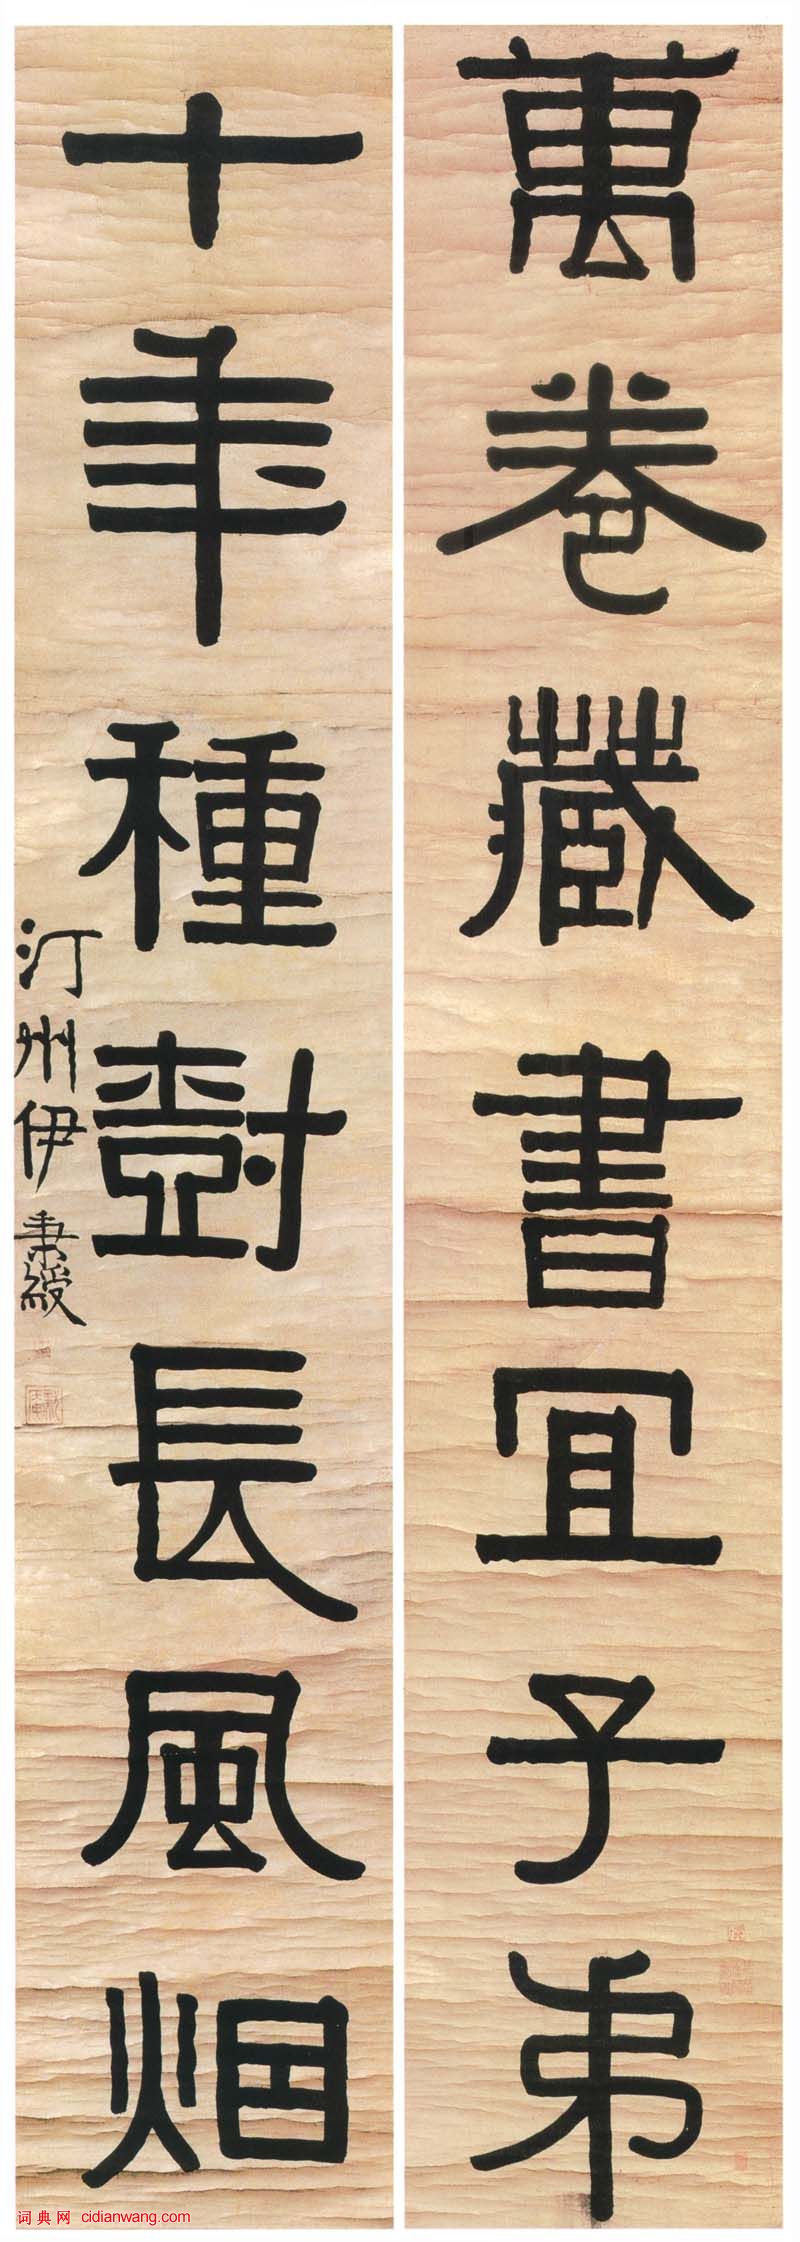 萬卷藏書宜子弟
十年種樹長風烟
汀州伊秉綬
词典网 cidianwang.com